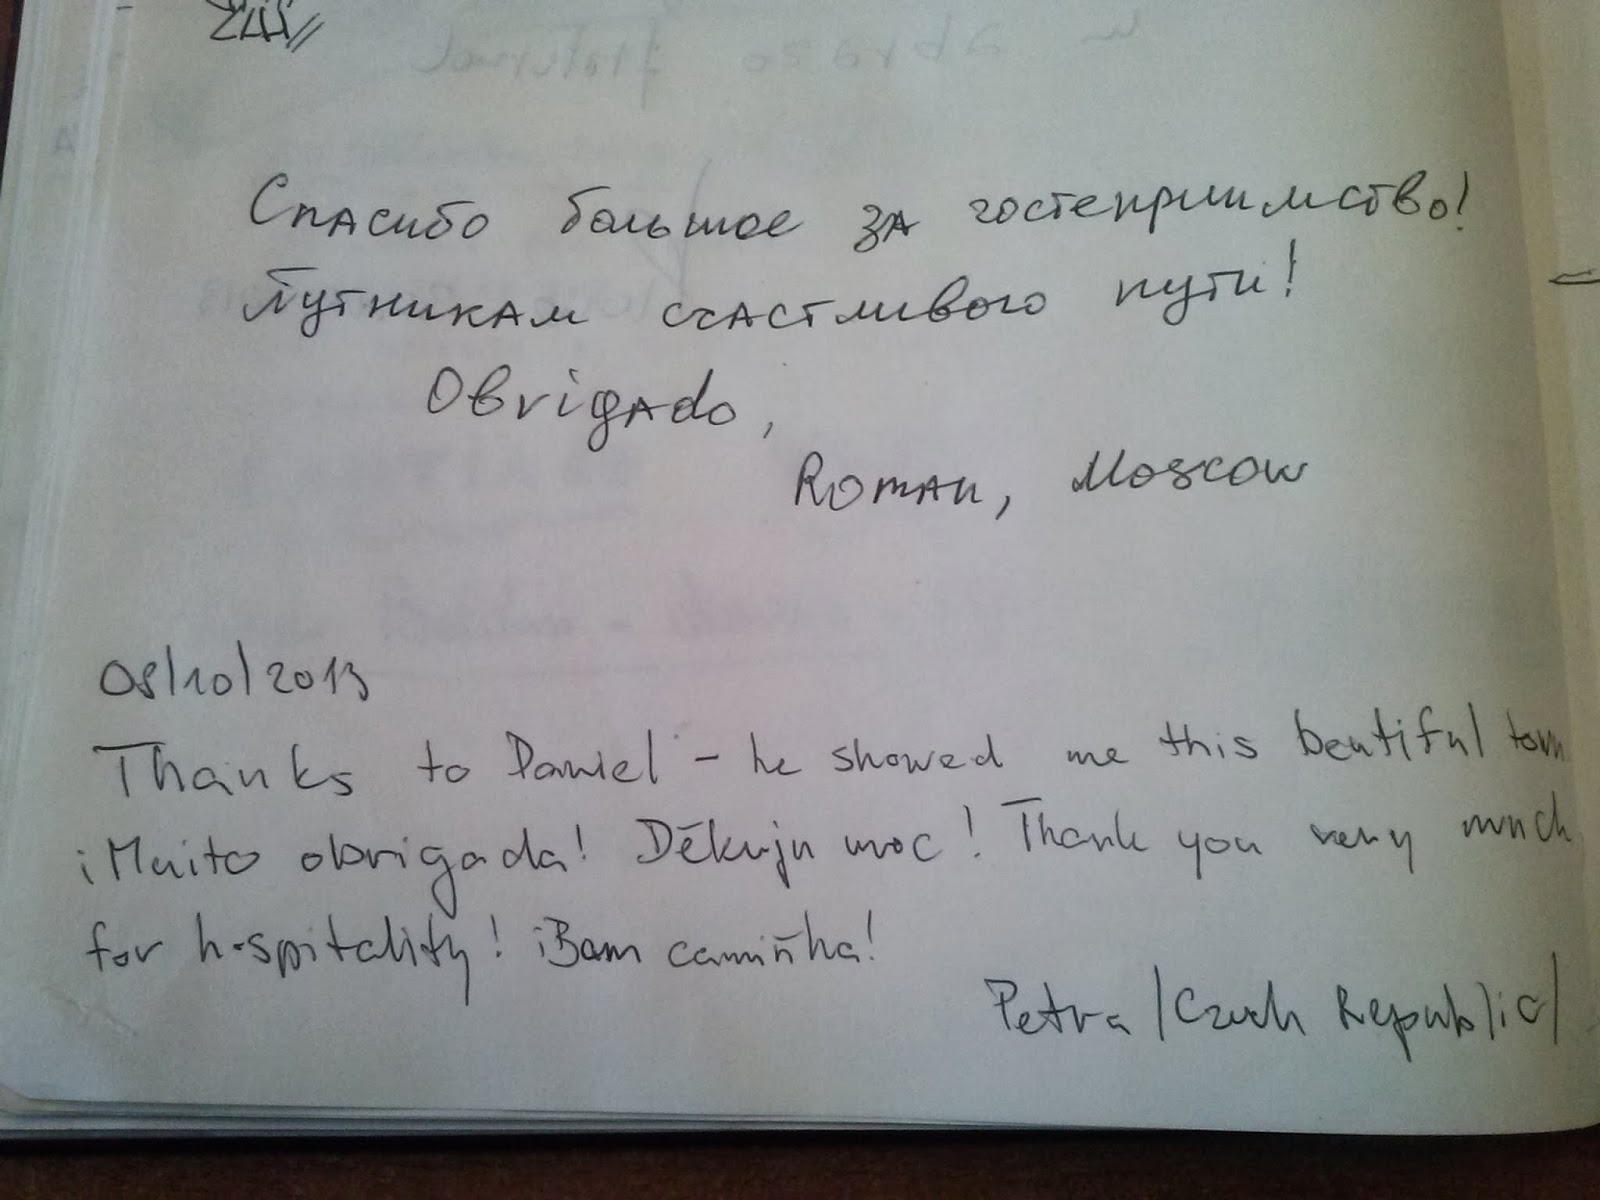 Спасибо большое за гостеприимство!
Путникам счастливого пути!
Obrigado,
Roman, Moscow
08/10/2013
Thanks to Daniel - he showed me this beutiful town
¡Muito obrigada! Děkuju moc! Thank you very much
for hospitality! ¡Bam camiñha!
Petra /Czech Republic/